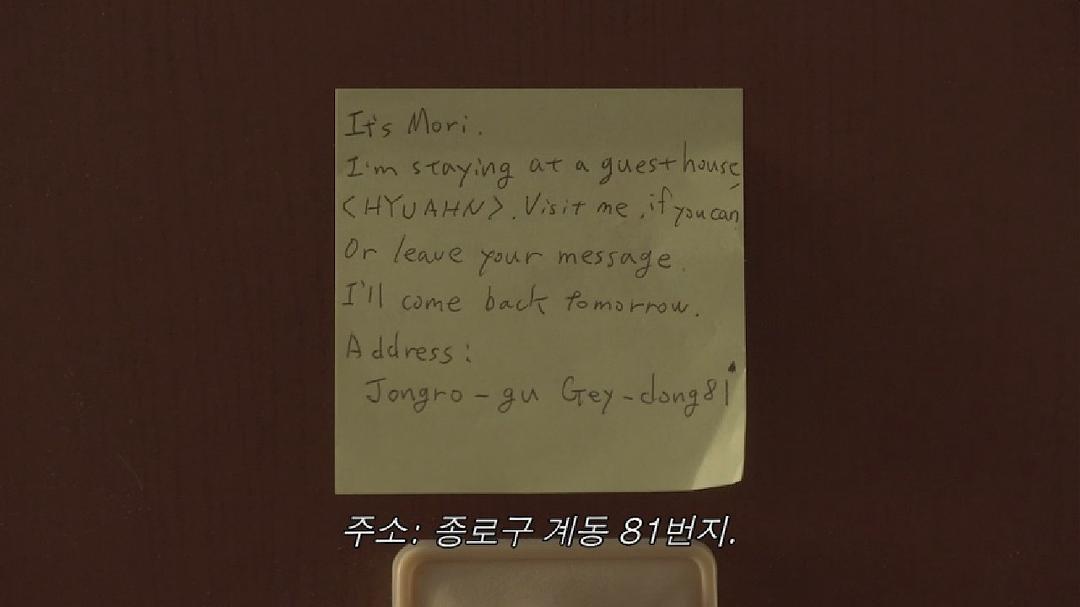 It's Mori.
I'm staying at a guesthouse,
<HYUAHN>. Visit me, if you can
Or leave your message.
I'll come back tomorrow.
Address:
Jongro-gu Gey-dong81
주소: 종로구 계동 81번지.